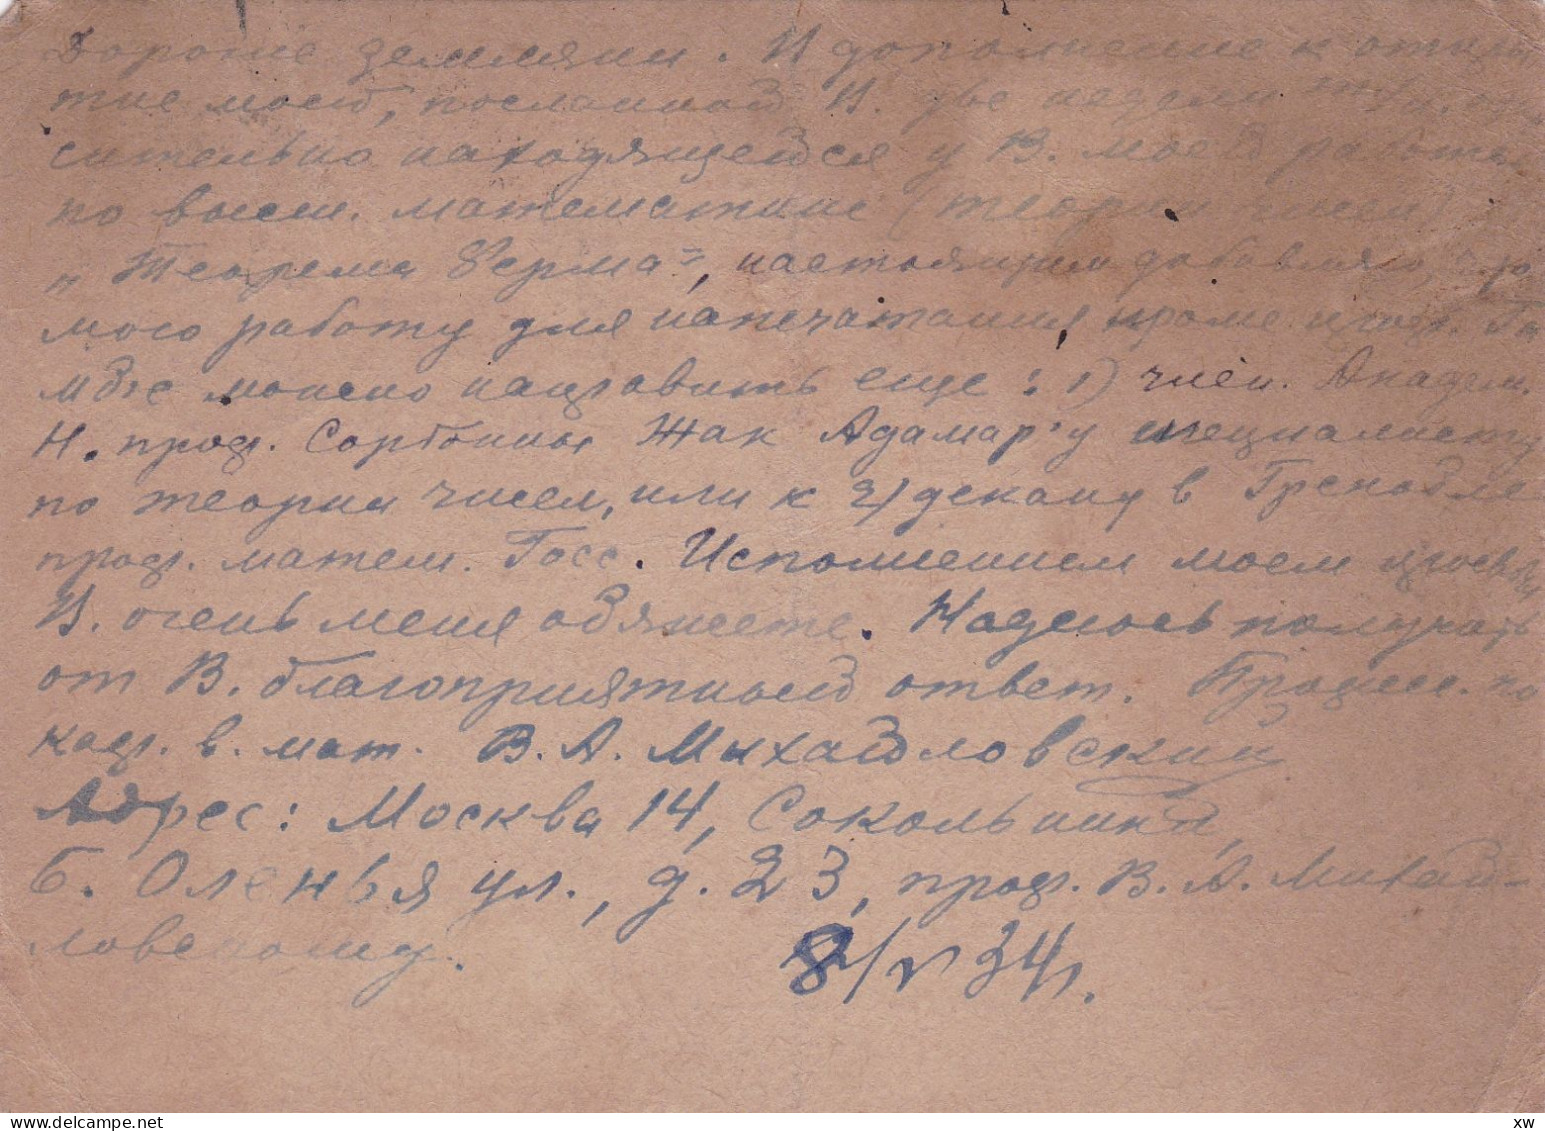 Дорогие земляки. В дополнение к открыт
тке моей, посланной В. две недели
сительно находящейся у В. моей работы
по высш. математике (теории чисел)
„Теорема Ферма", настоящим добавляю, что
мою работу для напечатания кроме проф.
можно направить еще: 1) член. Академ.
Н. проф. Сорбонны Жак Адамар'у специалисту
по теории чисел, или к 2) декану в Гренобле
проф. матем. Госс. Исполнением моей просьбы
В. очень меня обяжете. Надеюсь получить
от В. благоприятный ответ. Професс. по
каф. в. мат. В. А. Михайловский
Адрес: Москва 14, Сокольники,
Б. Оленья ул., д. 23, проф. В. А. Михай-
ловскому.
8/V 34 г.
delcampe.net
xw